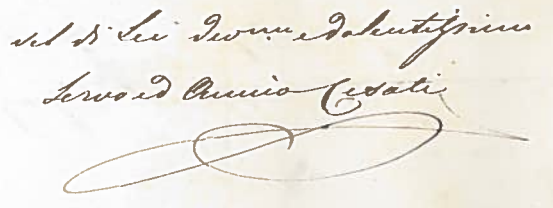 del di Lei Devmo. e dolentissimo
Servo ed Amico Cesati